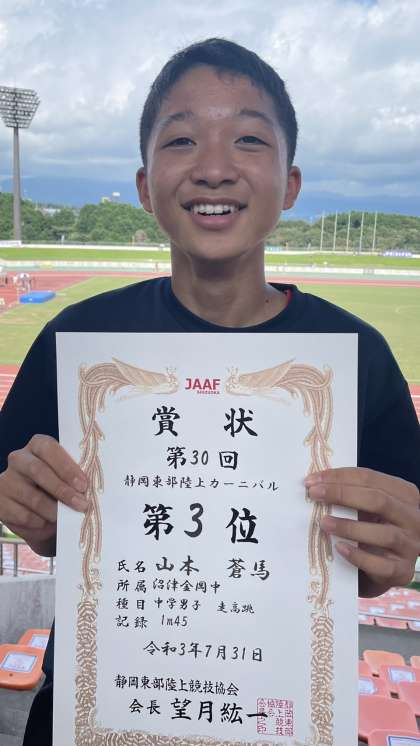 JAAF
SHIZUOKA
賞状
第30回
静岡東部陸上カーニバル
第3位
氏名 山本 蒼馬
所属 沼津金岡中
種目 中学男子 走高跳
記録 1m45
令和3年7月31日
静岡東部陸上競技協会
会長 望月紘一